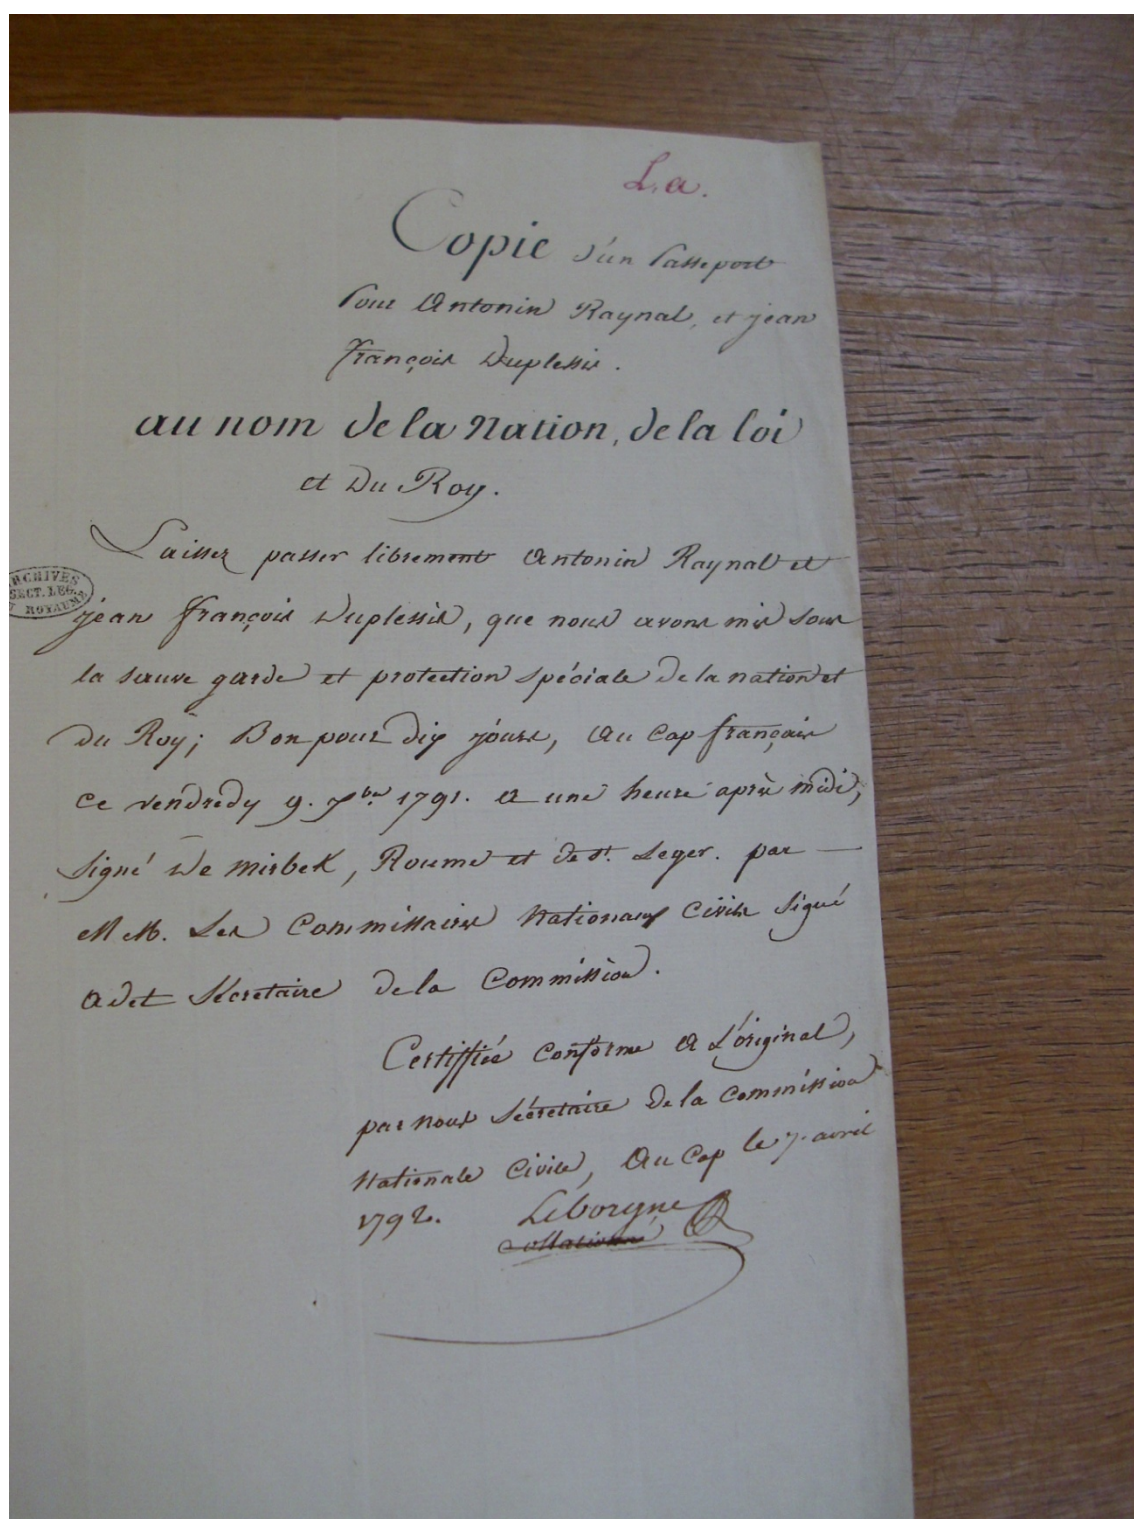 L. a.
Copie d'un Passeport
Pour Antonin Raynal, et jean
françois Duplessis.
au nom de la Nation, de la loi
et Du Roy.
Laissez passer librement Antonin Raynal et
jean françois Duplessis, que nous avons mis sous
la sauve garde et protection spéciale de la nation et
du Roy; Bon pour dix jours, au Cap français
ARCHIVES
SECT. LEG.
ROYAUME
ce vendredy 9. 7bre 1791. a une heure après midi,
signé De Mirbek, Roume et de St. Leger. par —
MM. Les Commissaires Nationaux Civils signé
adet Sécretaire de la Commission.
Certiffiée conforme a L'original,
par nous Sécretaire de la Commission
Nationale Civile, au Cap le 7. avril
1792. Leborgne
collationné